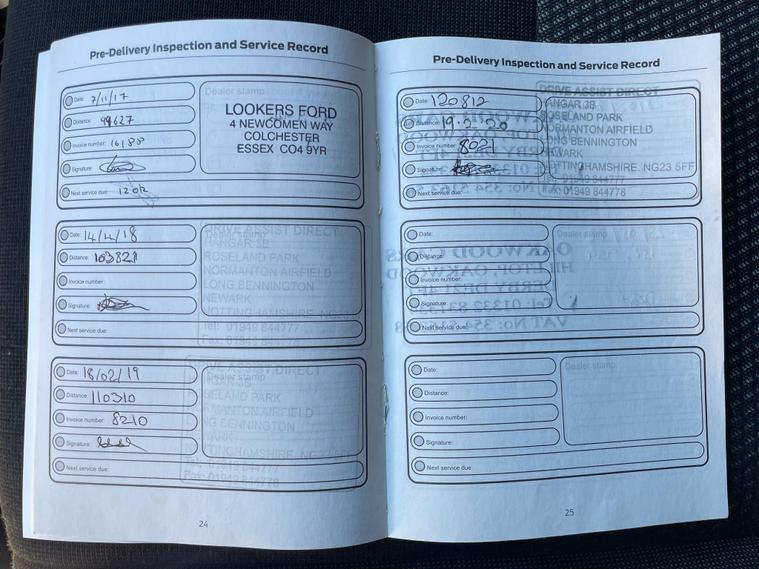 Pre-Delivery Inspection and Service Record
Date: 7/11/17
Distance: 99627
Invoice number: 16188
Signature:
Next service due: 120k
Dealer stamp
LOOKERS FORD
4 NEWCOMEN WAY
COLCHESTER
ESSEX CO4 9YR
Date: 14/4/18
Distance: 103821
Invoice number:
Signature:
Next service due:
Dealer stamp
DRIVE ASSIST DIRECT
HANGAR 3B
ROSELAND PARK
NORMANTON AIRFIELD
LONG BENNINGTON
NEWARK
NOTTINGHAMSHIRE
Tel: 01949 844777
Fax: 01949 844778
Date: 18/02/19
Distance: 110310
Invoice number: 8210
Signature:
Next service due:
Dealer stamp
ASSIST DIRECT
3B
SELAND PARK
RMANTON AIRFIELD
NG BENNINGTON
ARK
INGHAMSHIRE
01949 844777
Fax: 01949 844778
24
Pre-Delivery Inspection and Service Record
Date: 120812
Distance: 19.2.20
Invoice number: 8021
Signature:
Next service due:
DRIVE ASSIST DIRECT
HANGAR 3B
ROSELAND PARK
NORMANTON AIRFIELD
LONG BENNINGTON
NEWARK
NOTTINGHAMSHIRE. NG23 5FF
Tel: 01949 844777
Fax: 01949 844778
Date:
Distance:
Invoice number:
Signature:
Next service due:
Dealer stamp
OAKWOOD CARS
HILLTOP, OAKWOOD
DERBY DE21 4
Tel: 01332 831
VAT No: 354
Date:
Distance:
Invoice number:
Signature:
Next service due:
Dealer stamp
25